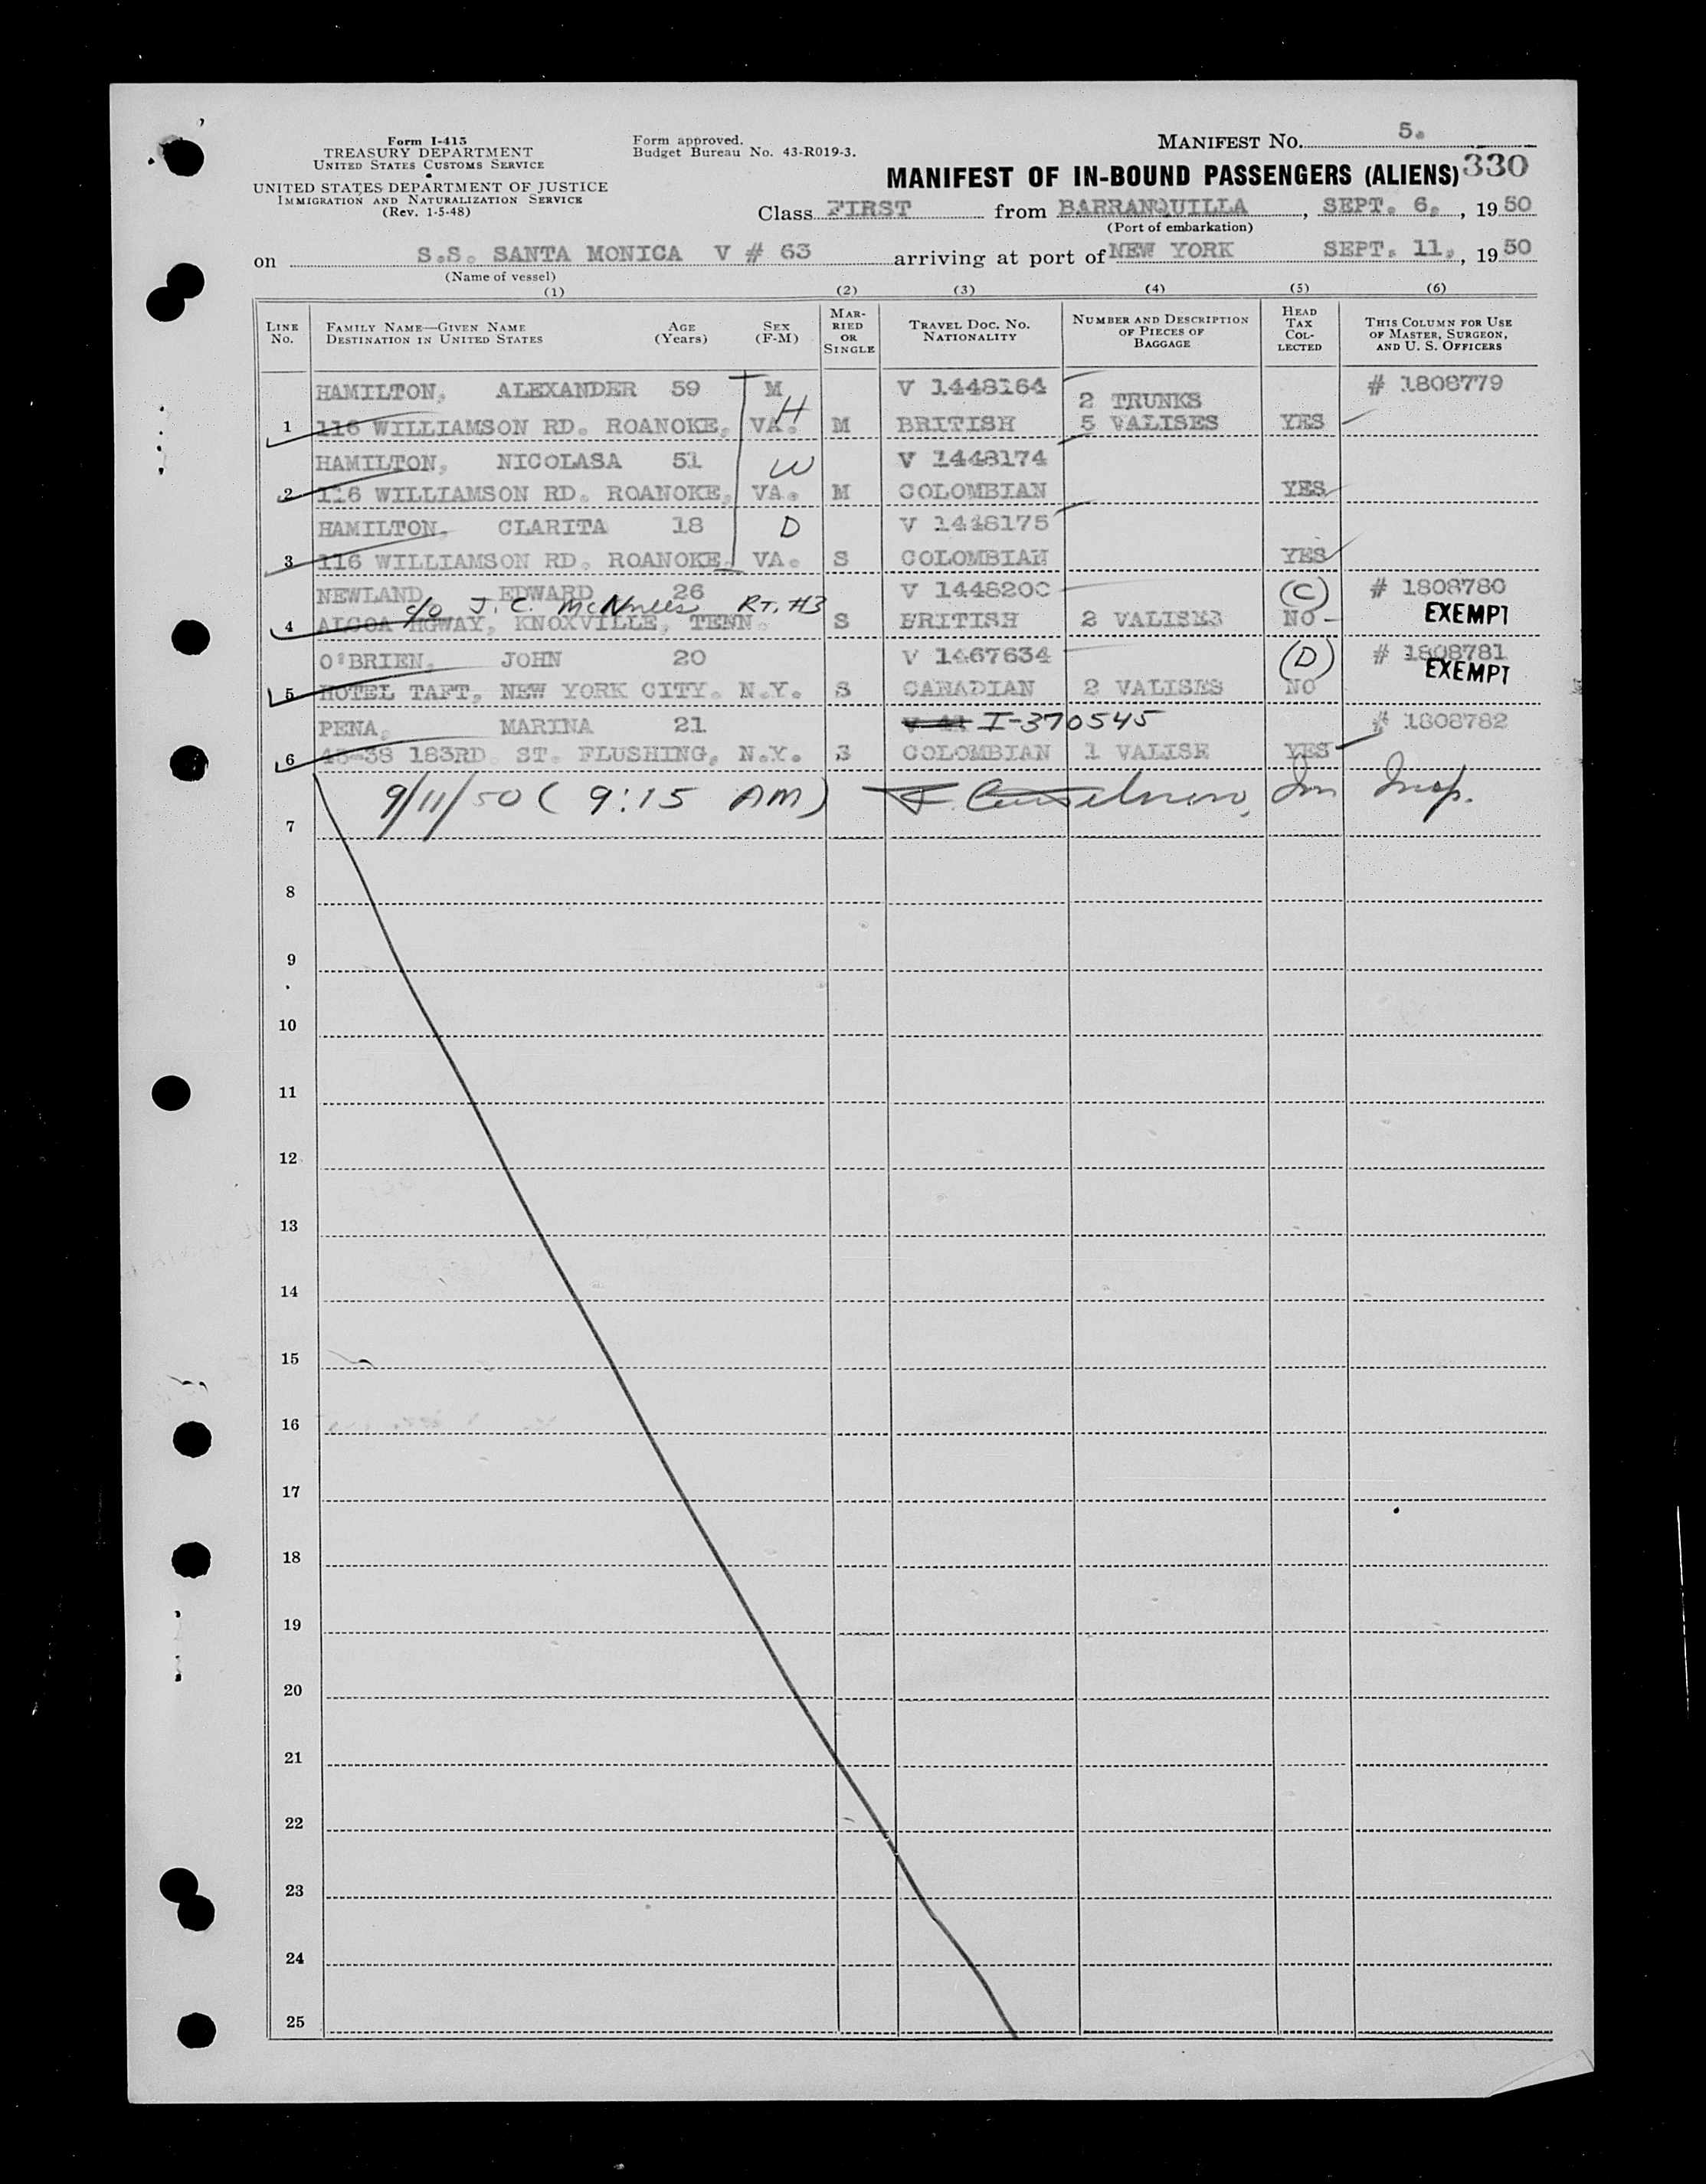 Form I-415
TREASURY DEPARTMENT
UNITED STATES CUSTOMS SERVICE
UNITED STATES DEPARTMENT OF JUSTICE
IMMIGRATION AND NATURALIZATION SERVICE
(Rev. 1-5-48)
Form approved.
Budget Bureau No. 43-R019-3.
MANIFEST No. 5.
MANIFEST OF IN-BOUND PASSENGERS (ALIENS) 330
Class FIRST from BARRANQUILLA, SEPT. 6, , 1950
(Port of embarkation)
on S.S. SANTA MONICA V # 63 arriving at port of NEW YORK SEPT. 11, , 1950
(Name of vessel)
(1) (2) (3) (4) (5) (6)
LINE No. FAMILY NAME—GIVEN NAME DESTINATION IN UNITED STATES AGE (Years) SEX (F-M) MARRIED OR SINGLE TRAVEL DOC. NO. NATIONALITY NUMBER AND DESCRIPTION OF PIECES OF BAGGAGE HEAD TAX COLLECTED THIS COLUMN FOR USE OF MASTER, SURGEON, AND U. S. OFFICERS
HAMILTON, ALEXANDER 59 M V 1448164 2 TRUNKS # 1808779
1 116 WILLIAMSON RD. ROANOKE, VA. H M BRITISH 5 VALISES YES
HAMILTON, NICOLASA 51 W V 1448174
2 116 WILLIAMSON RD. ROANOKE, VA. M COLOMBIAN YES
HAMILTON, CLARITA 18 D V 1448175
3 116 WILLIAMSON RD. ROANOKE, VA. S COLOMBIAN YES
NEWLAND EDWARD 26 V 1448200 (C) # 1808780
c/o J. C. RT. #3 EXEMPT
4 ALCOA HGWAY, KNOXVILLE, TENN. S BRITISH 2 VALISES NO
O'BRIEN, JOHN 20 V 1467634 (D) # 1808781
EXEMPT
5 HOTEL TAFT, NEW YORK CITY. N.Y. S CANADIAN 2 VALISES NO
PENA, MARINA 21 I-370545 # 1808782
6 45-38 183RD. ST. FLUSHING, N.Y. S COLOMBIAN 1 VALISE YES
9/11/50 ( 9:15 AM) Im Insp.
7
8
9
10
11
12
13
14
15
16
17
18
19
20
21
22
23
24
25